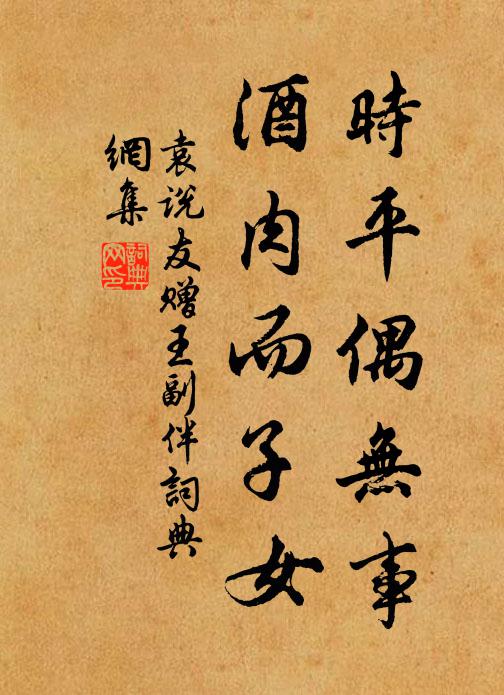 時平偶無事
酒肉而子女
袁说友赠王副伴詞典
網集
詞典
网印